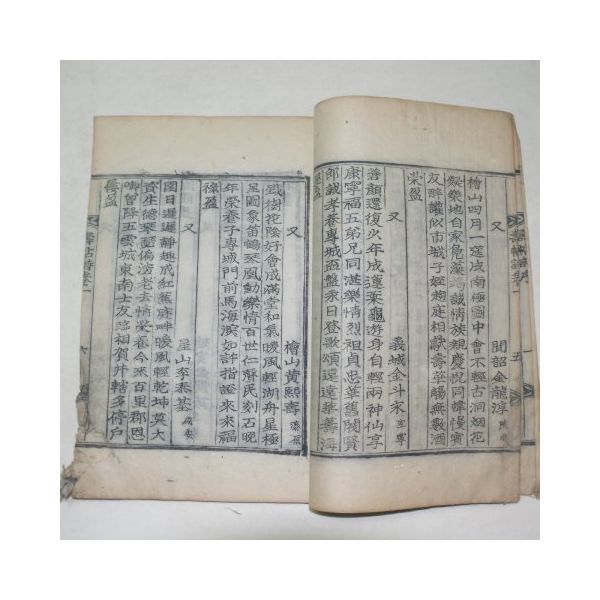 又
聞韶金龍淳
檜山四月一筵成南極圖中會不輕古洞烟花
娛樂地自家危藻竭誠情族親慶悅同樽慢賓
友醉讙似市城子姪趨庭相獻壽華觴無數酒
榮盈
又
義城金斗永
善顏還復少年成運策龜遊身自輕兩神仙享
康寧福五弟兄同湛樂情烈祖貞忠華舊閥賢
郎誠孝養專城盃盤永日登歌頌還遠華壽海
又
檜山黃熙壽
鐵樹花陰好會成滿堂和氣暖風輕湖舟星極
呈圖象苗鵠琴風動樂情百世仁聲氏刻石晩
年榮養子專城門前馬海濱如許指證來來福
祿盈
又
星山李泰基
園日遲遲靜趣成紅蕉庭畔暖風輕乾坤莫大
資生德琴瑟偏淡老去情榮養今來百里郡恩
啣曾降五雲城東南士友臨相賀幷轄多停戶